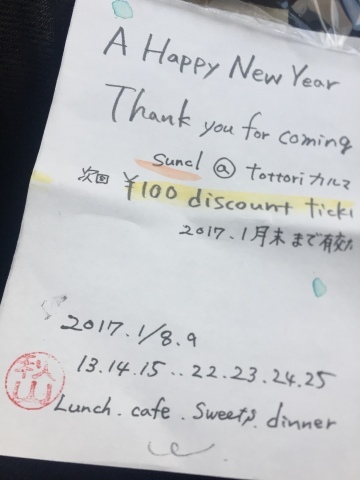 A Happy New Year
Thank you for coming
suncl @ tottori カルマ
次回 ¥100 discount ticki
2017.1月末まで有効
2017.1/8.9
13.14.15..22.23.24.25
Lunch.cafe.Sweets.dinner